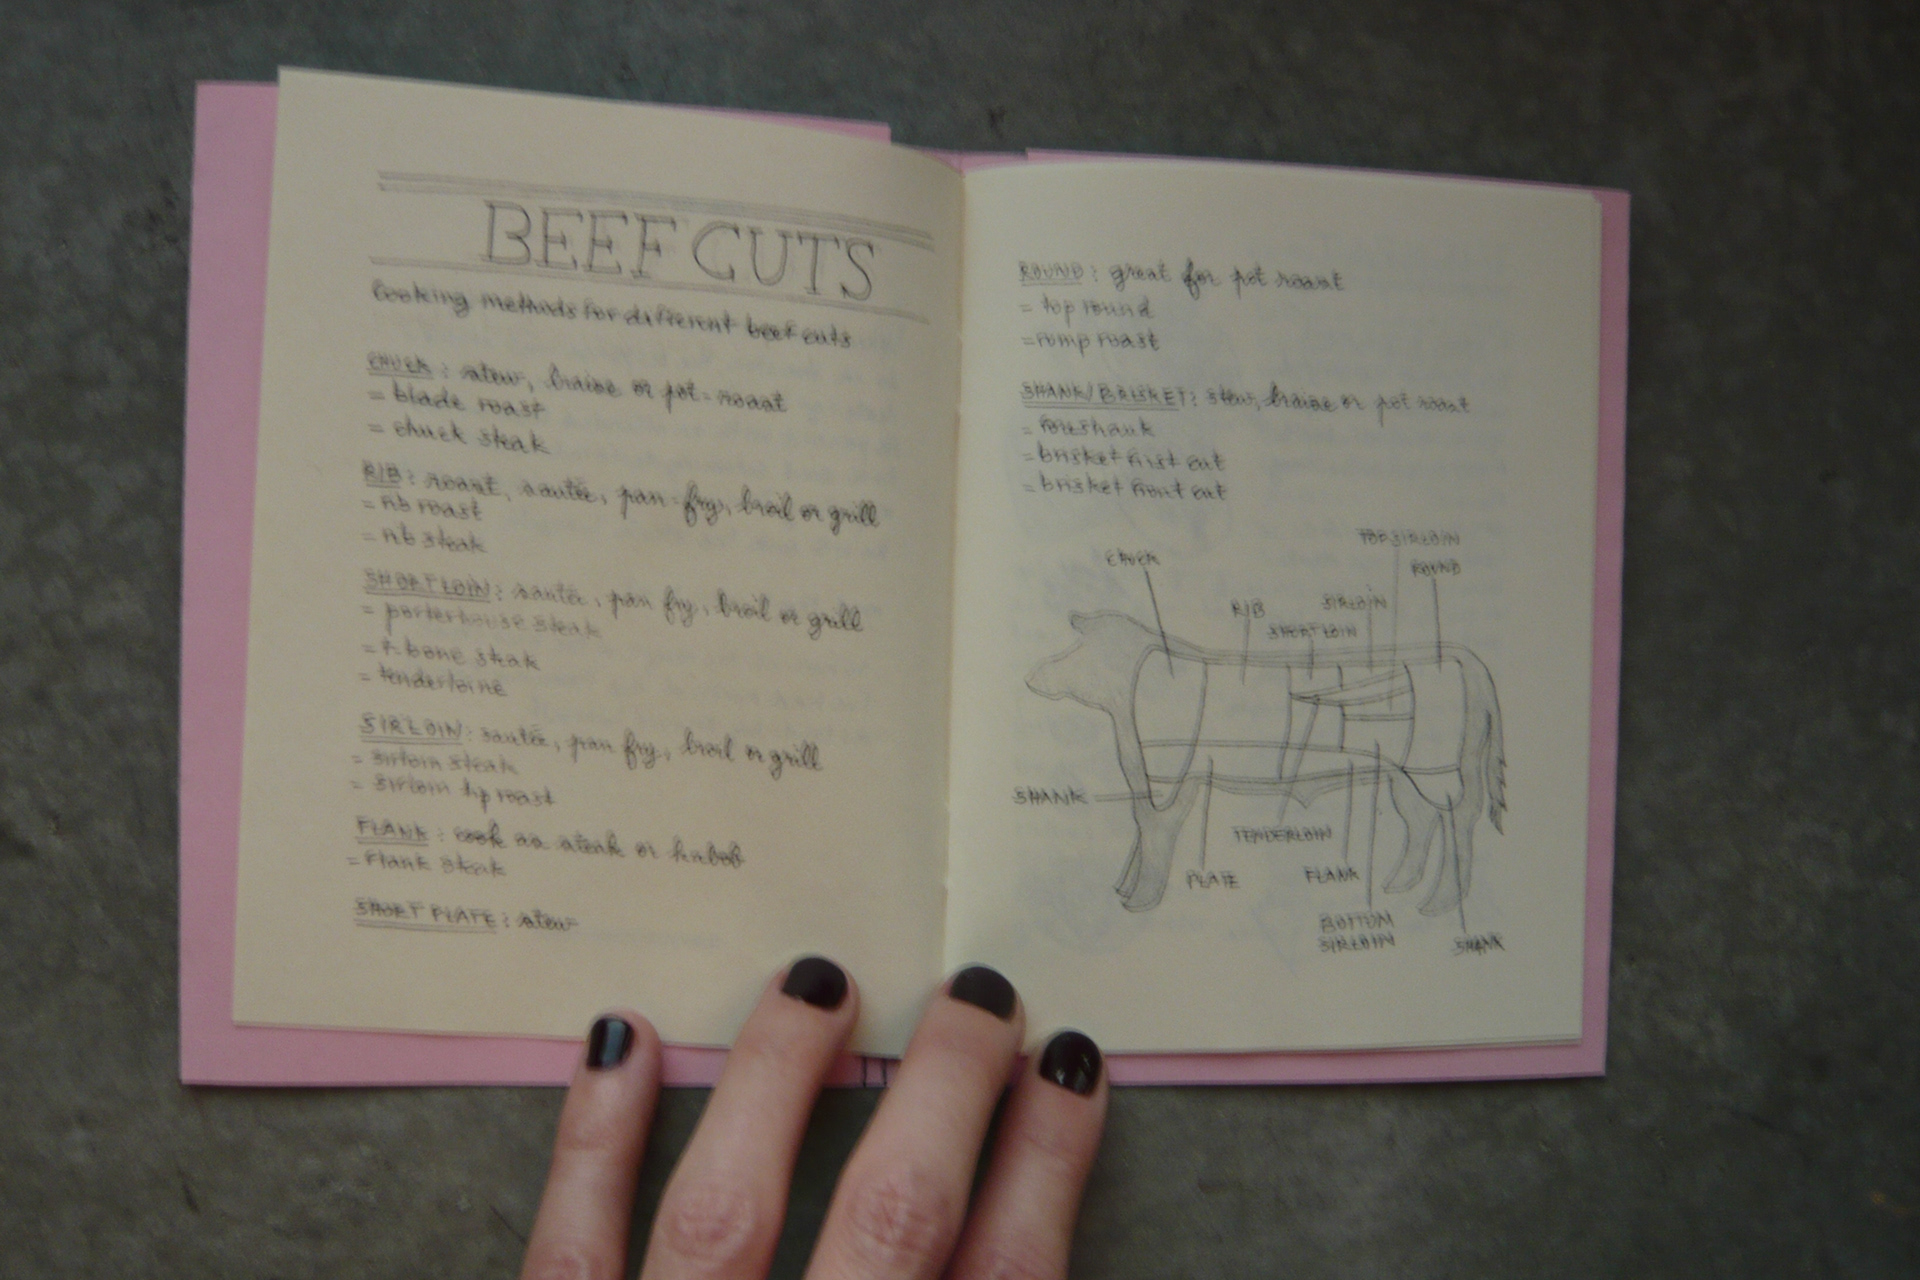 BEEF CUTS
Cooking methods for different beef cuts
CHUCK: stew, braise or pot-roast
= blade roast
= chuck steak
RIB: roast, sautée, pan-fry, broil or grill
= rib roast
= rib steak
SHORT LOIN: sautée, pan fry, broil or grill
= porterhouse steak
= t-bone steak
= tenderloine
SIRLOIN: sautée, pan fry, broil or grill
= sirloin steak
= sirloin tip roast
FLANK: cook as steak or kabob
= flank steak
SHORT PLATE: stew
ROUND: great for pot roast
= top round
= rump roast
SHANK/BRISKET: stew, braise or pot roast
= foreshank
= brisket first cut
= brisket front cut
TOP SIRLOIN
CHUCK
ROUND
RIB
SIRLOIN
SHORT LOIN
SHANK
TENDERLOIN
PLATE
FLANK
BOTTOM
SIRLOIN
SHANK